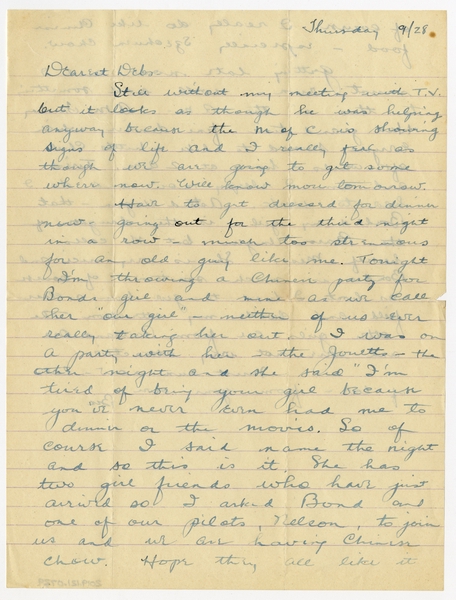 Thursday 9/28
Dearest Debs:
Still without my meeting with T.V.
but it looks as though he was helping
anyway because the M of C is showing
signs of life and I really feel as
though we are going to get some
where now. Will know more tomorrow.
Have to get dressed for dinner
now - going out for the third night
in a row - much too strenuous
for an old guy like me. Tonight
I'm throwing a Chinese party for
Bonds girl and mine as we call
her "our girl" - neither of us ever
really taking her out. I was on
a party with her at the Jouetts - the
other night and she said "I'm
tired of being your girl because
you've never even had me to
dinner or the movies. So of
course I said name the night
and so this is it. She has
two girl friends who have just
arrived so I asked Bond and
one of our pilots, Nelson, to join
us and we are having Chinese
chow. Hope they all like it